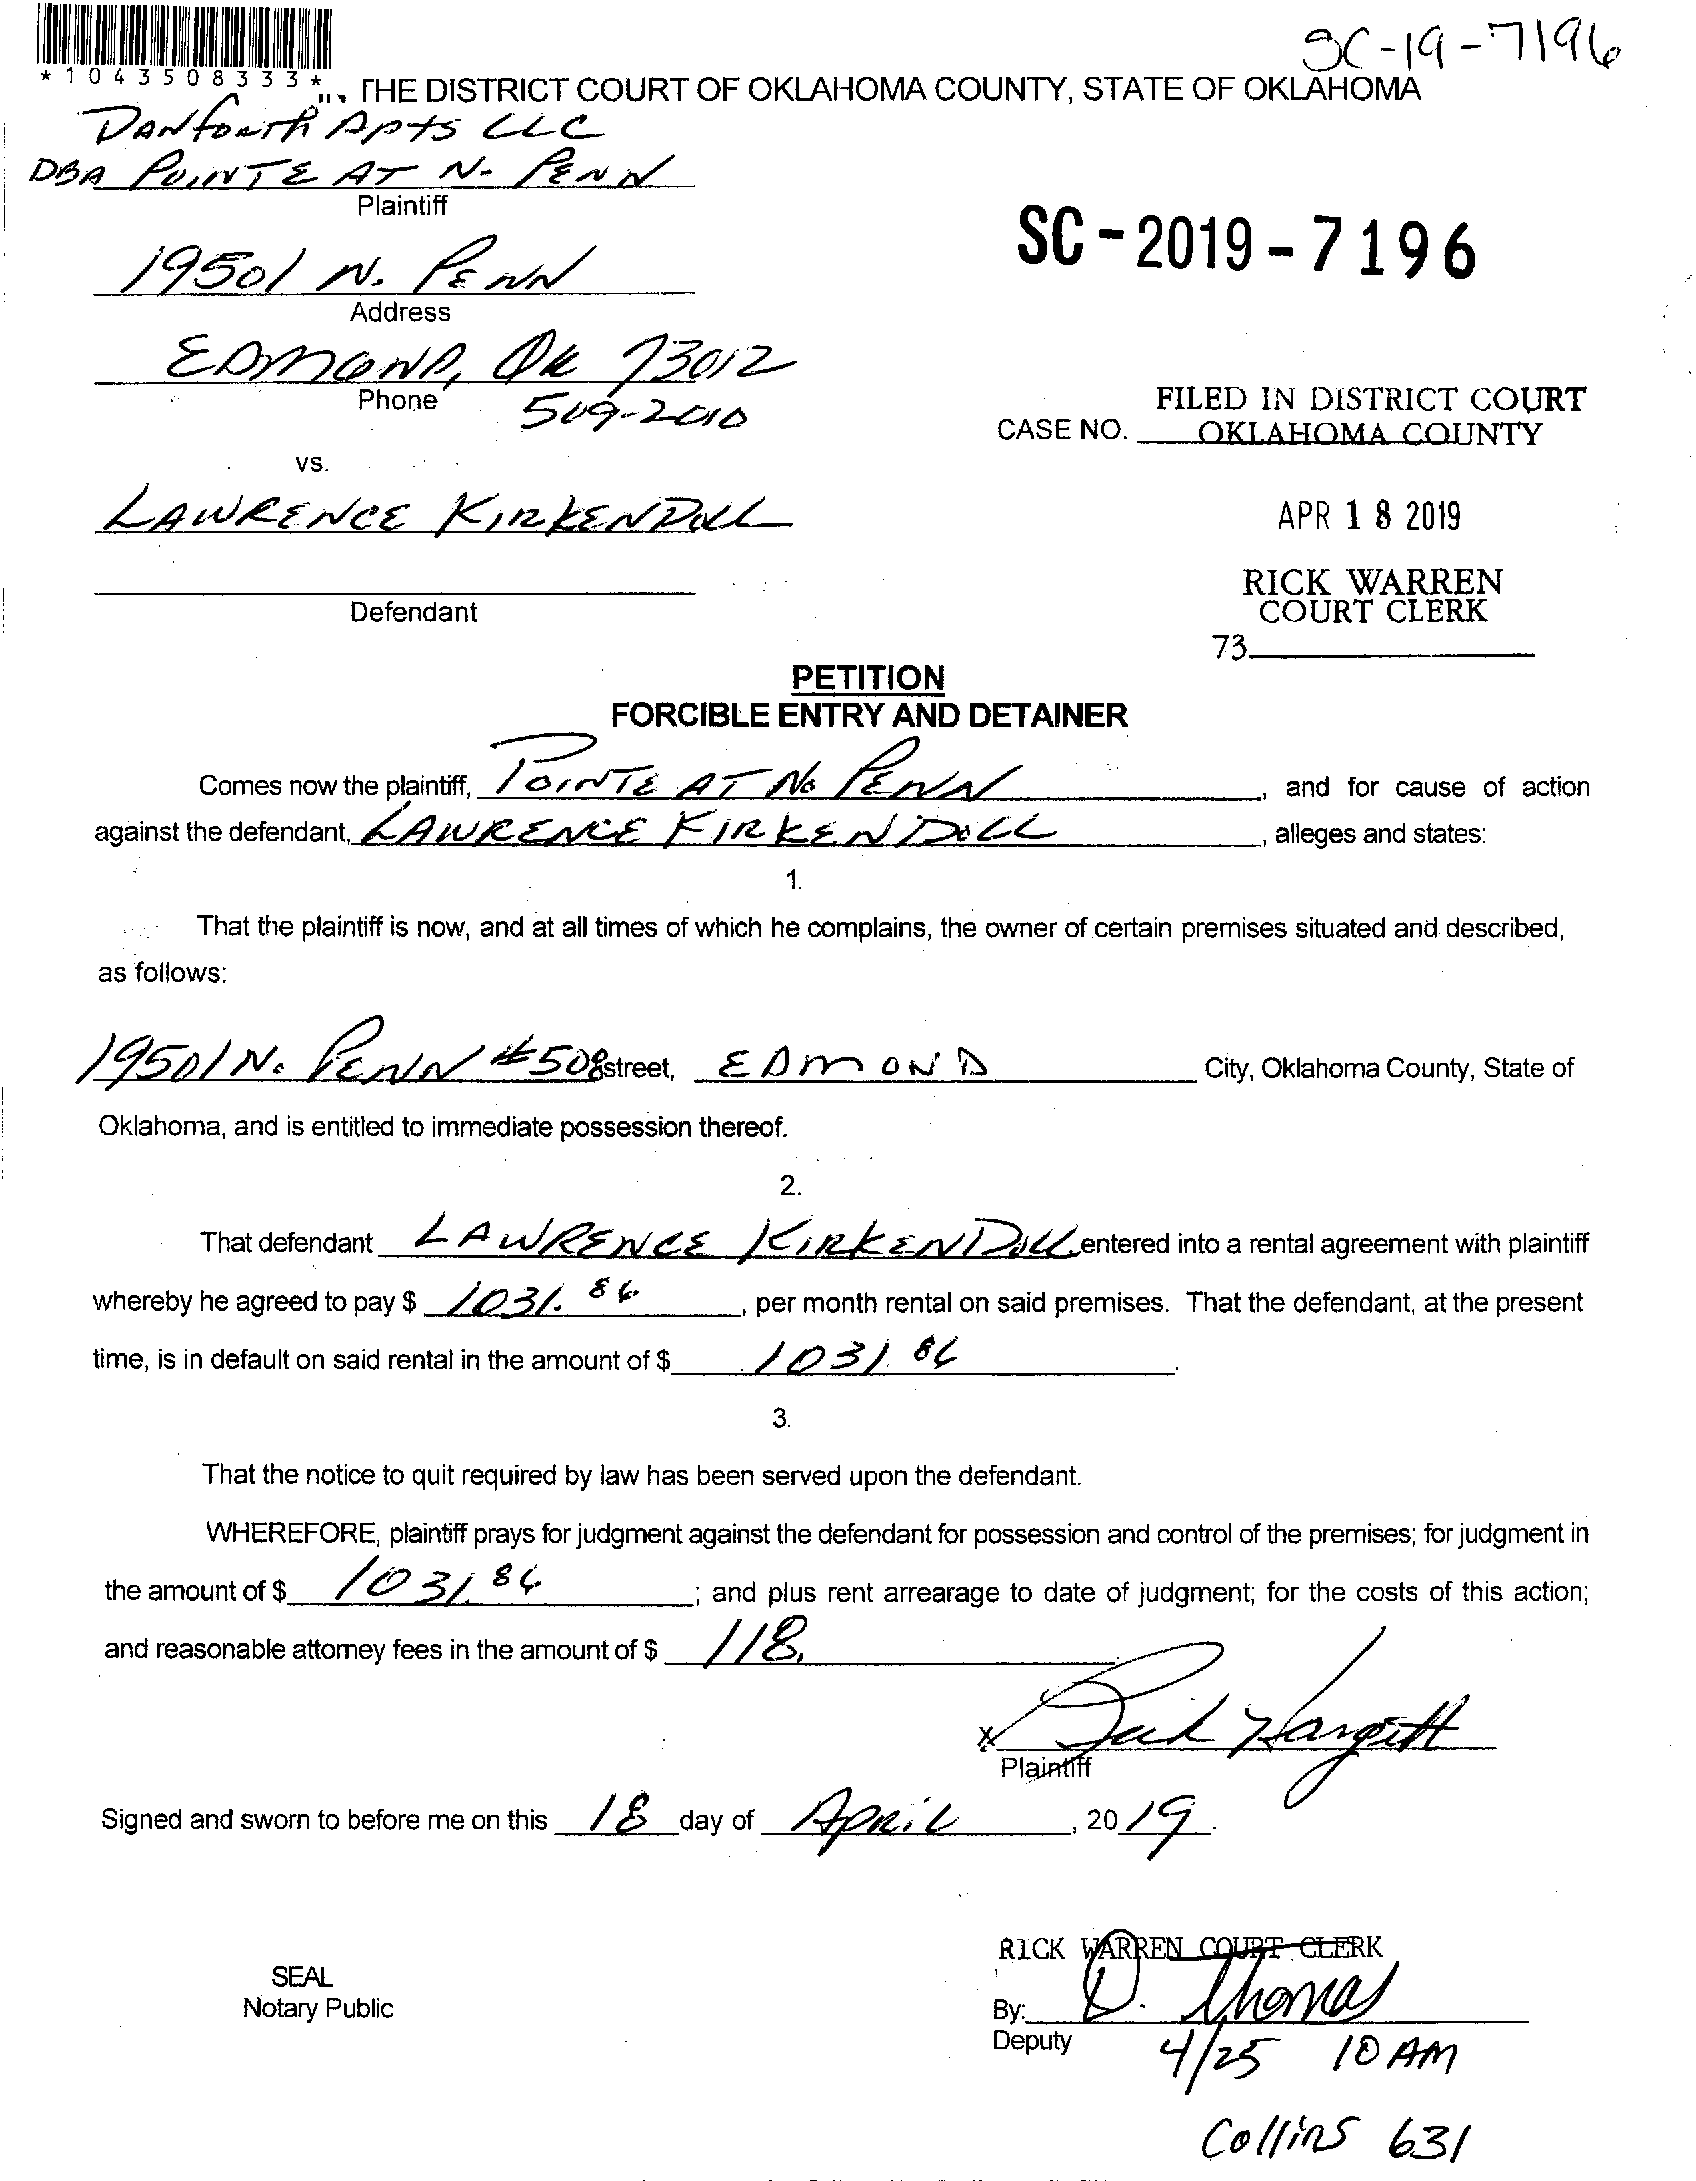 SC-19-7196
*1043508333*
THE DISTRICT COURT OF OKLAHOMA COUNTY, STATE OF OKLAHOMA
Danforth Apts LLC
DBA POINTE AT N. PENN
Plaintiff
SC-2019-7196
19501 N. PENN
Address
EDMOND, OK 73012
Phone 509-2010
FILED IN DISTRICT COURT
CASE NO. OKLAHOMA COUNTY
vs.
LAWRENCE KIRKENDOLL
APR 18 2019
RICK WARREN
Defendant
COURT CLERK
73
PETITION
FORCIBLE ENTRY AND DETAINER
Comes now the plaintiff, POINTE AT No PENN, and for cause of action
against the defendant, LAWRENCE KIRKENDOLL, alleges and states:
1.
That the plaintiff is now, and at all times of which he complains, the owner of certain premises situated and described,
as follows:
19501 N. PENN #508 street, EDMOND City, Oklahoma County, State of
Oklahoma, and is entitled to immediate possession thereof.
2.
That defendant LAWRENCE KIRKENDOLL entered into a rental agreement with plaintiff
whereby he agreed to pay $ 1031.86, per month rental on said premises. That the defendant, at the present
time, is in default on said rental in the amount of $ 1031.86.
3.
That the notice to quit required by law has been served upon the defendant.
WHEREFORE, plaintiff prays for judgment against the defendant for possession and control of the premises; for judgment in
the amount of $ 1031.86; and plus rent arrearage to date of judgment; for the costs of this action;
and reasonable attorney fees in the amount of $ 118.
x Hargett
Plaintiff
Signed and sworn to before me on this 18 day of APRIL, 2019.
RICK WARREN COURT CLERK
SEAL
Notary Public
By: D. Thomas
Deputy
4/25 10 AM
Collins 631